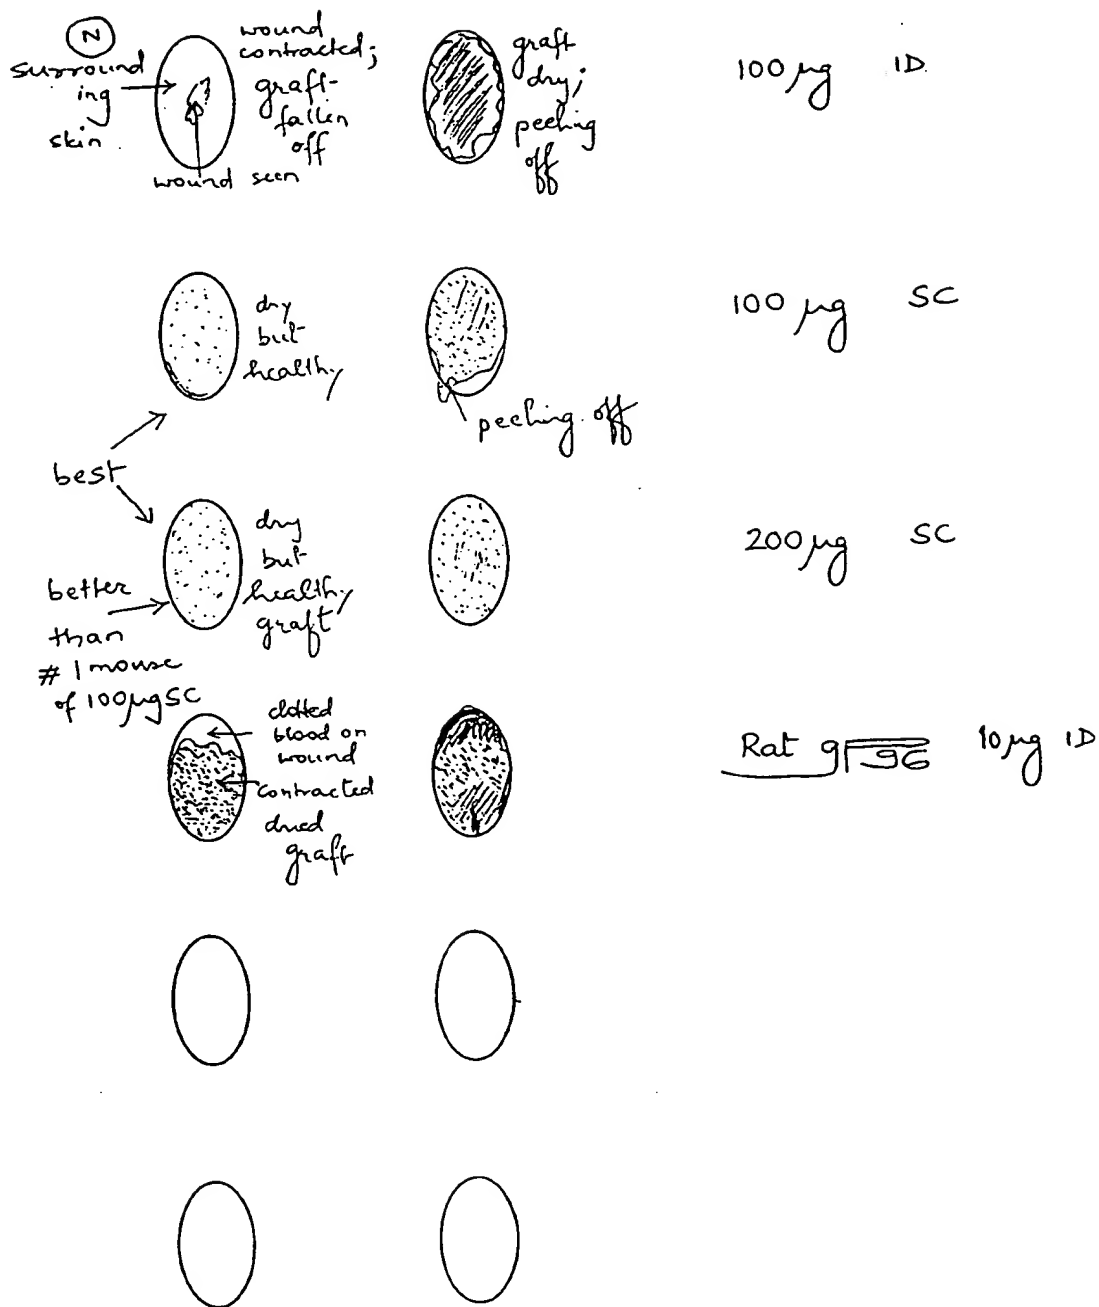 N
surround
ing
skin
wound
contracted;
graft
fallen
off
wound seen
graft
dry;
peeling
off
100 µg ID
dry
but
healthy
peeling off
100 µg SC
best
dry
but
healthy
graft
200 µg SC
better
than
# 1 mouse
of 100µg SC
clotted
blood on
wound
contracted
dried
graft
Rat gp96 10µg ID